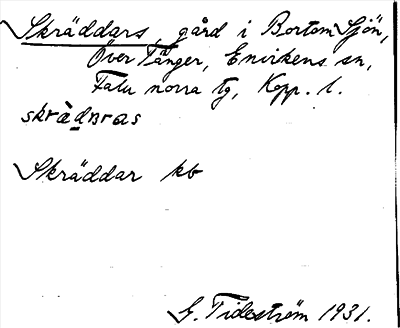 Skräddars, gård i Bortom Sjön,
Över Tänger, Envikens sn,
Falu norra tg, Kopp. l.
skràdn̥ras
Skräddar kb
G. Tideström 1931.